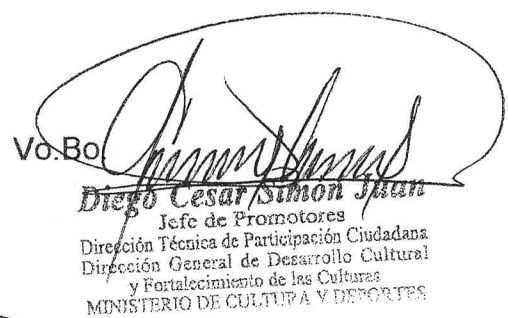 Vo.Bo
Diego Cesar Simón Juan
Jefe de Promotores
Dirección Técnica de Participación Ciudadana
Dirección General de Desarrollo Cultural
y Fortalecimiento de las Culturas
MINISTERIO DE CULTURA Y DEPORTES